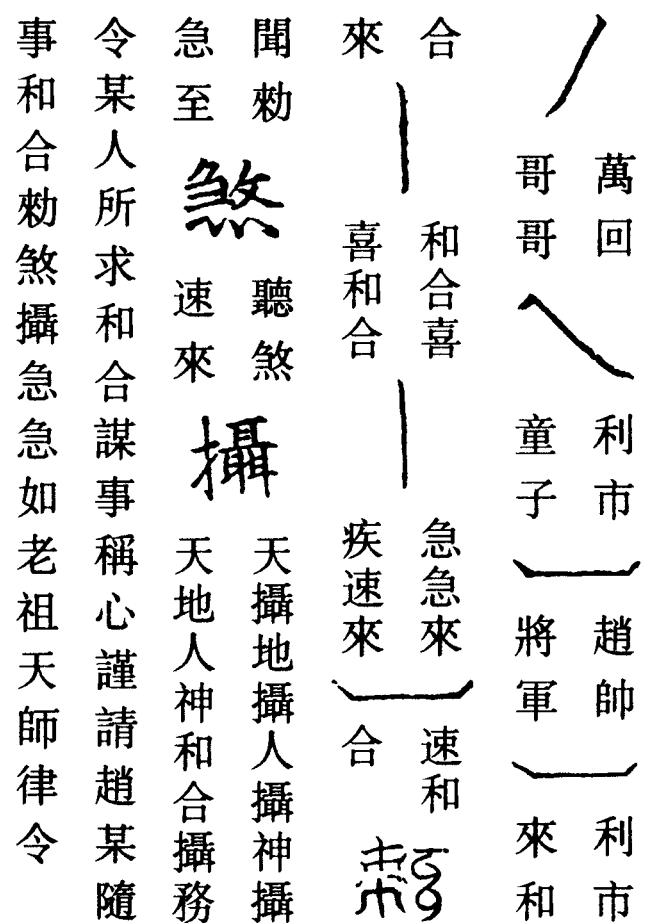 萬回
哥哥
利市
童子
趙帥
將軍
利市
來和
合
來
和合喜
喜和合
急急來
疾速來
速和
合
聞勑
急至
煞
聽煞
速來
攝
天攝地攝人攝神攝
天地人神和合攝務
令某人所求和合謀事稱心謹請趙某隨
事和合勑煞攝急急如老祖天師律令